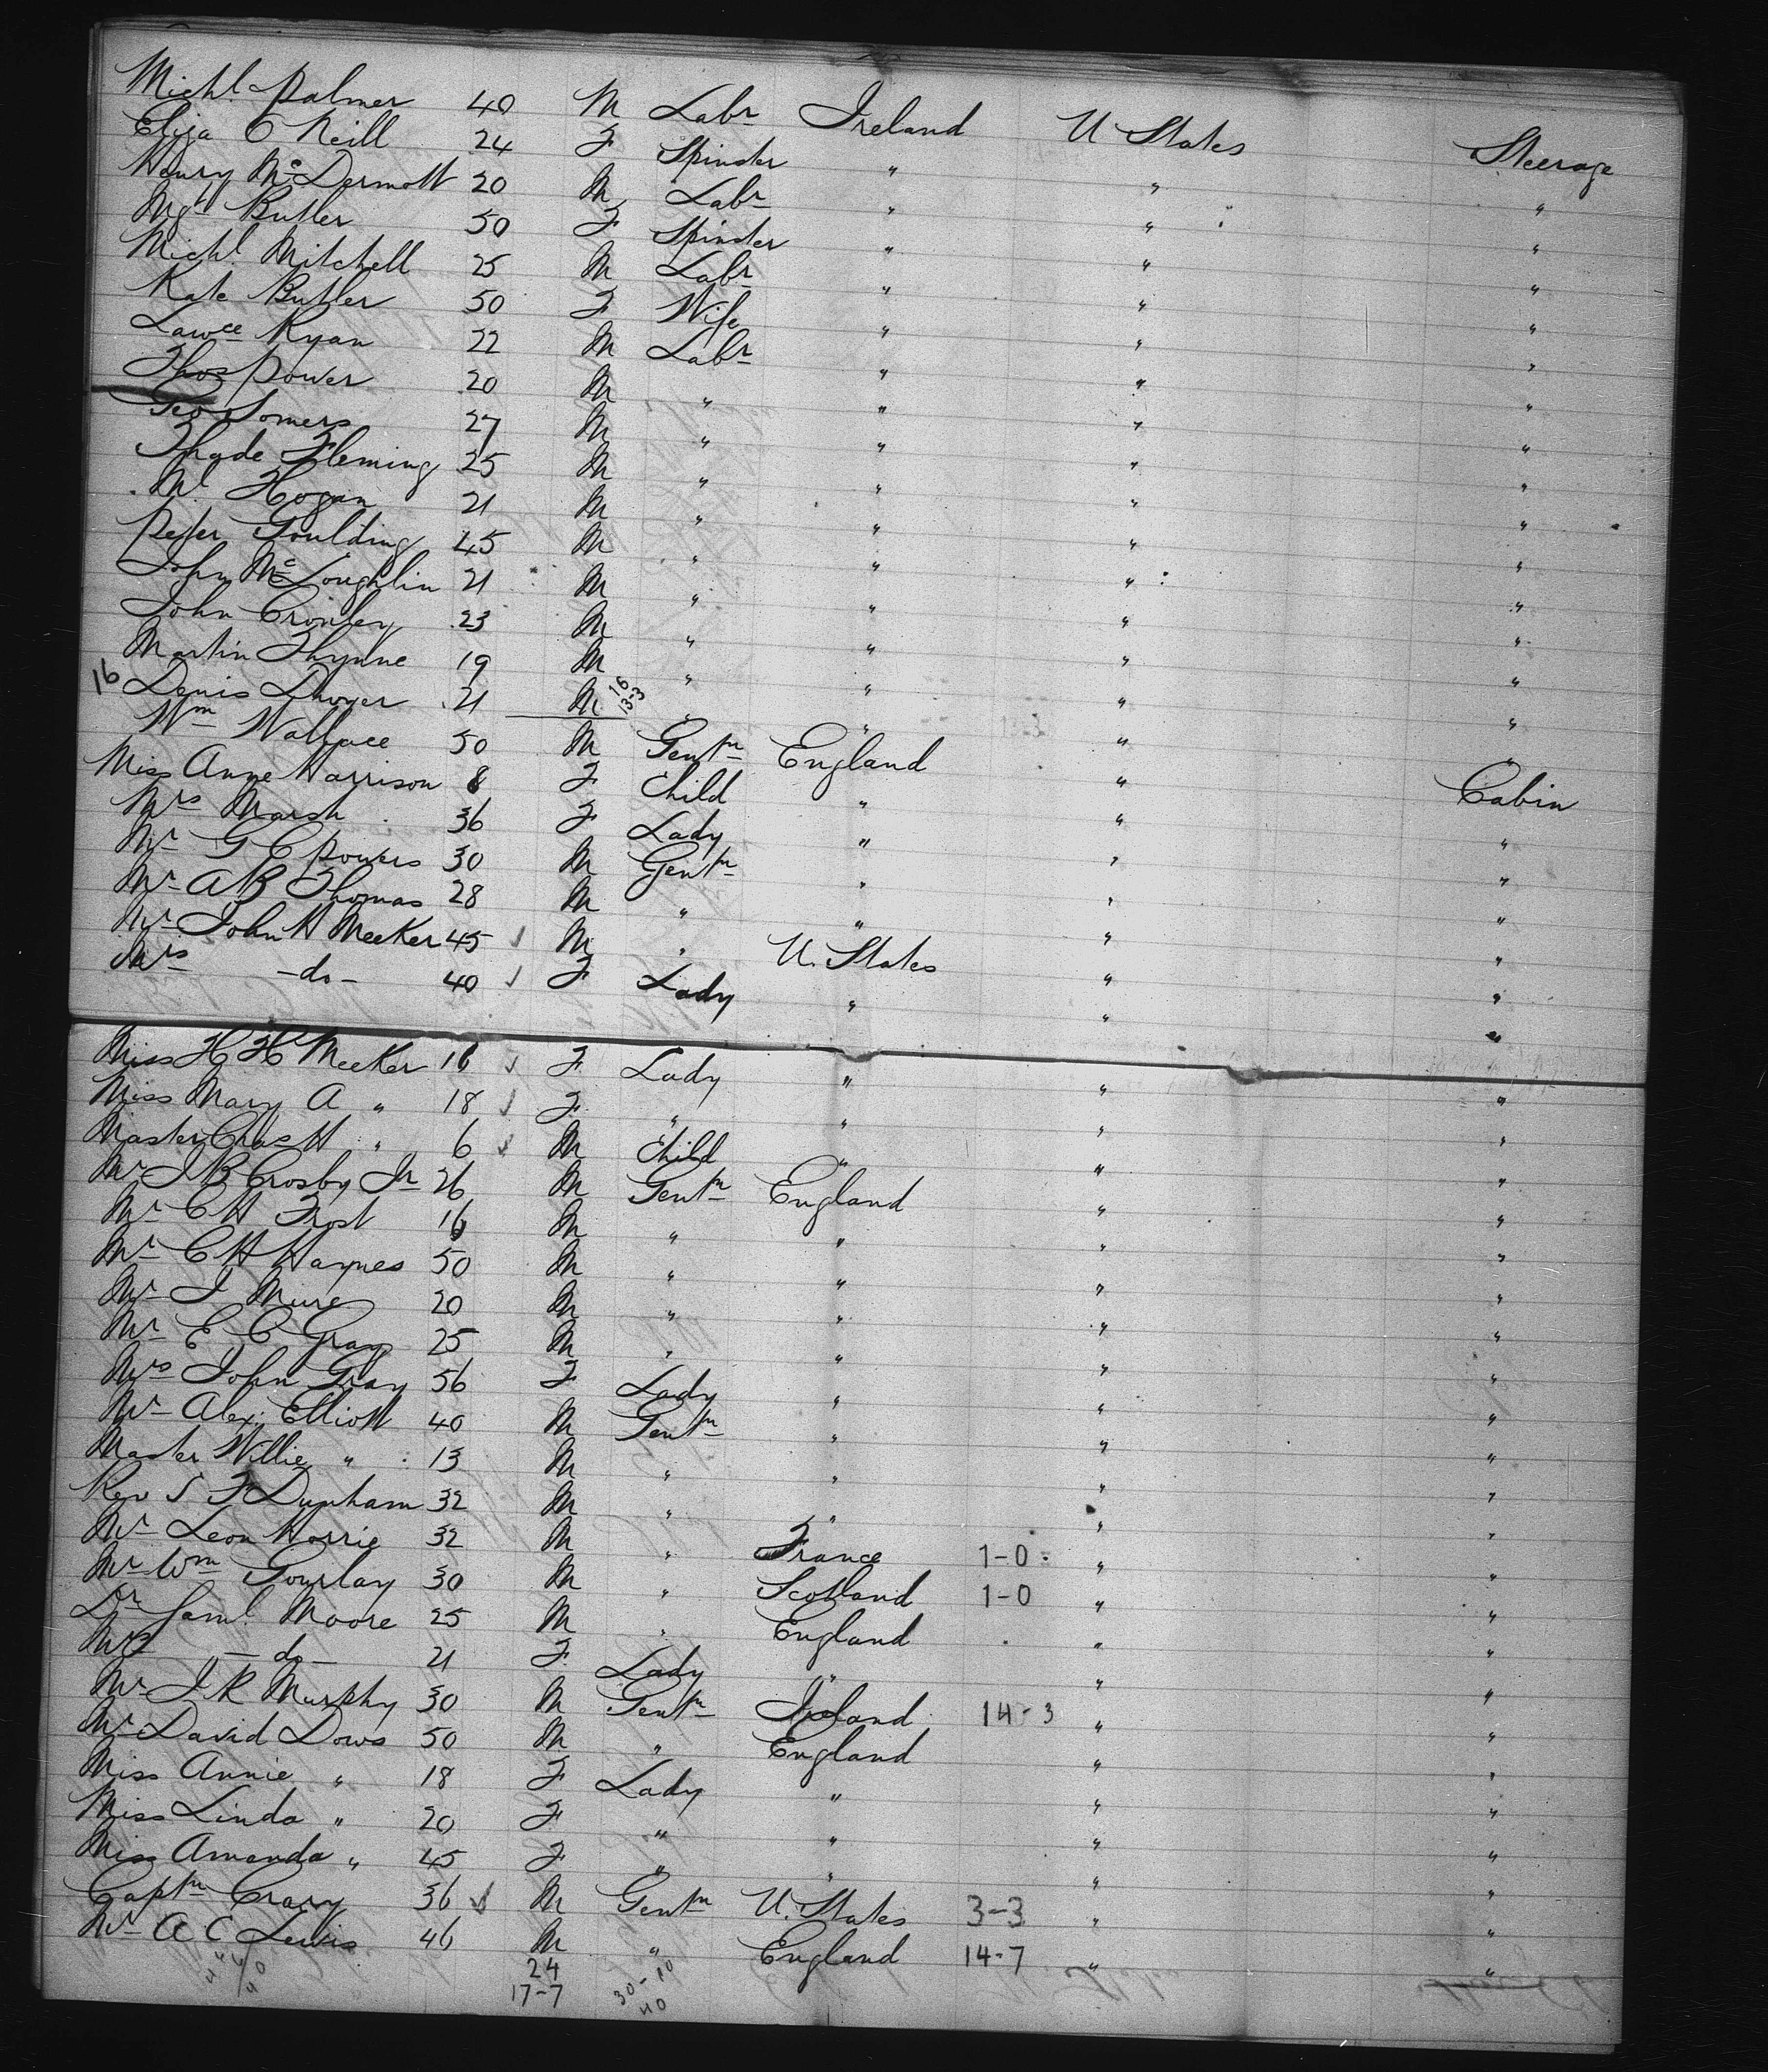 Michl. Palmer 40 M Labr Ireland U States Steerage
Eliza O Neill 24 F Spinster " " "
Henry McDermott 20 M Labr " " "
Mgt Butler 50 F Spinster " " "
Michl. Mitchell 25 M Labr " " "
Kate Butler 50 F Wife " " "
Lawce Ryan 22 M Labr " " "
Thos Power 20 M " " " "
Geo Somers 27 M " " " "
Thade Fleming 25 M " " " "
Ml Hogan 21 M " " " "
Peter Goulding 45 M " " " "
John McLoughlin 21 M " " " "
John Cronley 23 M " " " "
Martin Thynne 19 M " " " "
16 Denis Dwyer 21 M 16 13-3 " " " "
Wm Wallace 50 M Gentn England " Cabin
Miss Anne Harrison 8 F Child " " "
Mrs Marsh 36 F Lady " " "
Mr G C Powers 30 M Gentn " " "
Mr A B Thomas 28 M " " " "
Mr John H Meeker 45 M " U. States " "
Mrs -do- 40 F Lady " " "
Miss H H Meeker 16 F Lady " " "
Miss Mary A " 18 F " " " "
Master Chas H " 6 M Child " " "
Mr J B Crosby Jr 26 M Gentn England " "
Mr C H Frost 16 M " " " "
Mr C H Haynes 50 M " " " "
Mr J Mure 20 M " " " "
Mr E C Gray 25 M " " " "
Mrs John Gray 56 F Lady " " "
Mr Alex. Elliott 40 M Gentn " " "
Master Willie " 13 M " " " "
Rev S F Dunham 32 M " " " "
Mr Leon Harrie 32 M " France 1-0 " "
Mr Wm Gourlay 30 M " Scotland 1-0 " "
Dr Saml. Moore 25 M " England " "
Mrs -do- 21 F Lady " " "
Mr J R Murphy 30 M Gentn Ireland 14-3 " "
Mr David Dows 50 M " England " "
Miss Annie " 18 F Lady " " "
Miss Linda " 20 F " " " "
Miss Amanda " 45 F " " " "
Captn Crary 36 M Gentn U. States 3-3 " "
Mr A C Lewis 46 M " England 14-7 " "
24
17-7 30-10
40